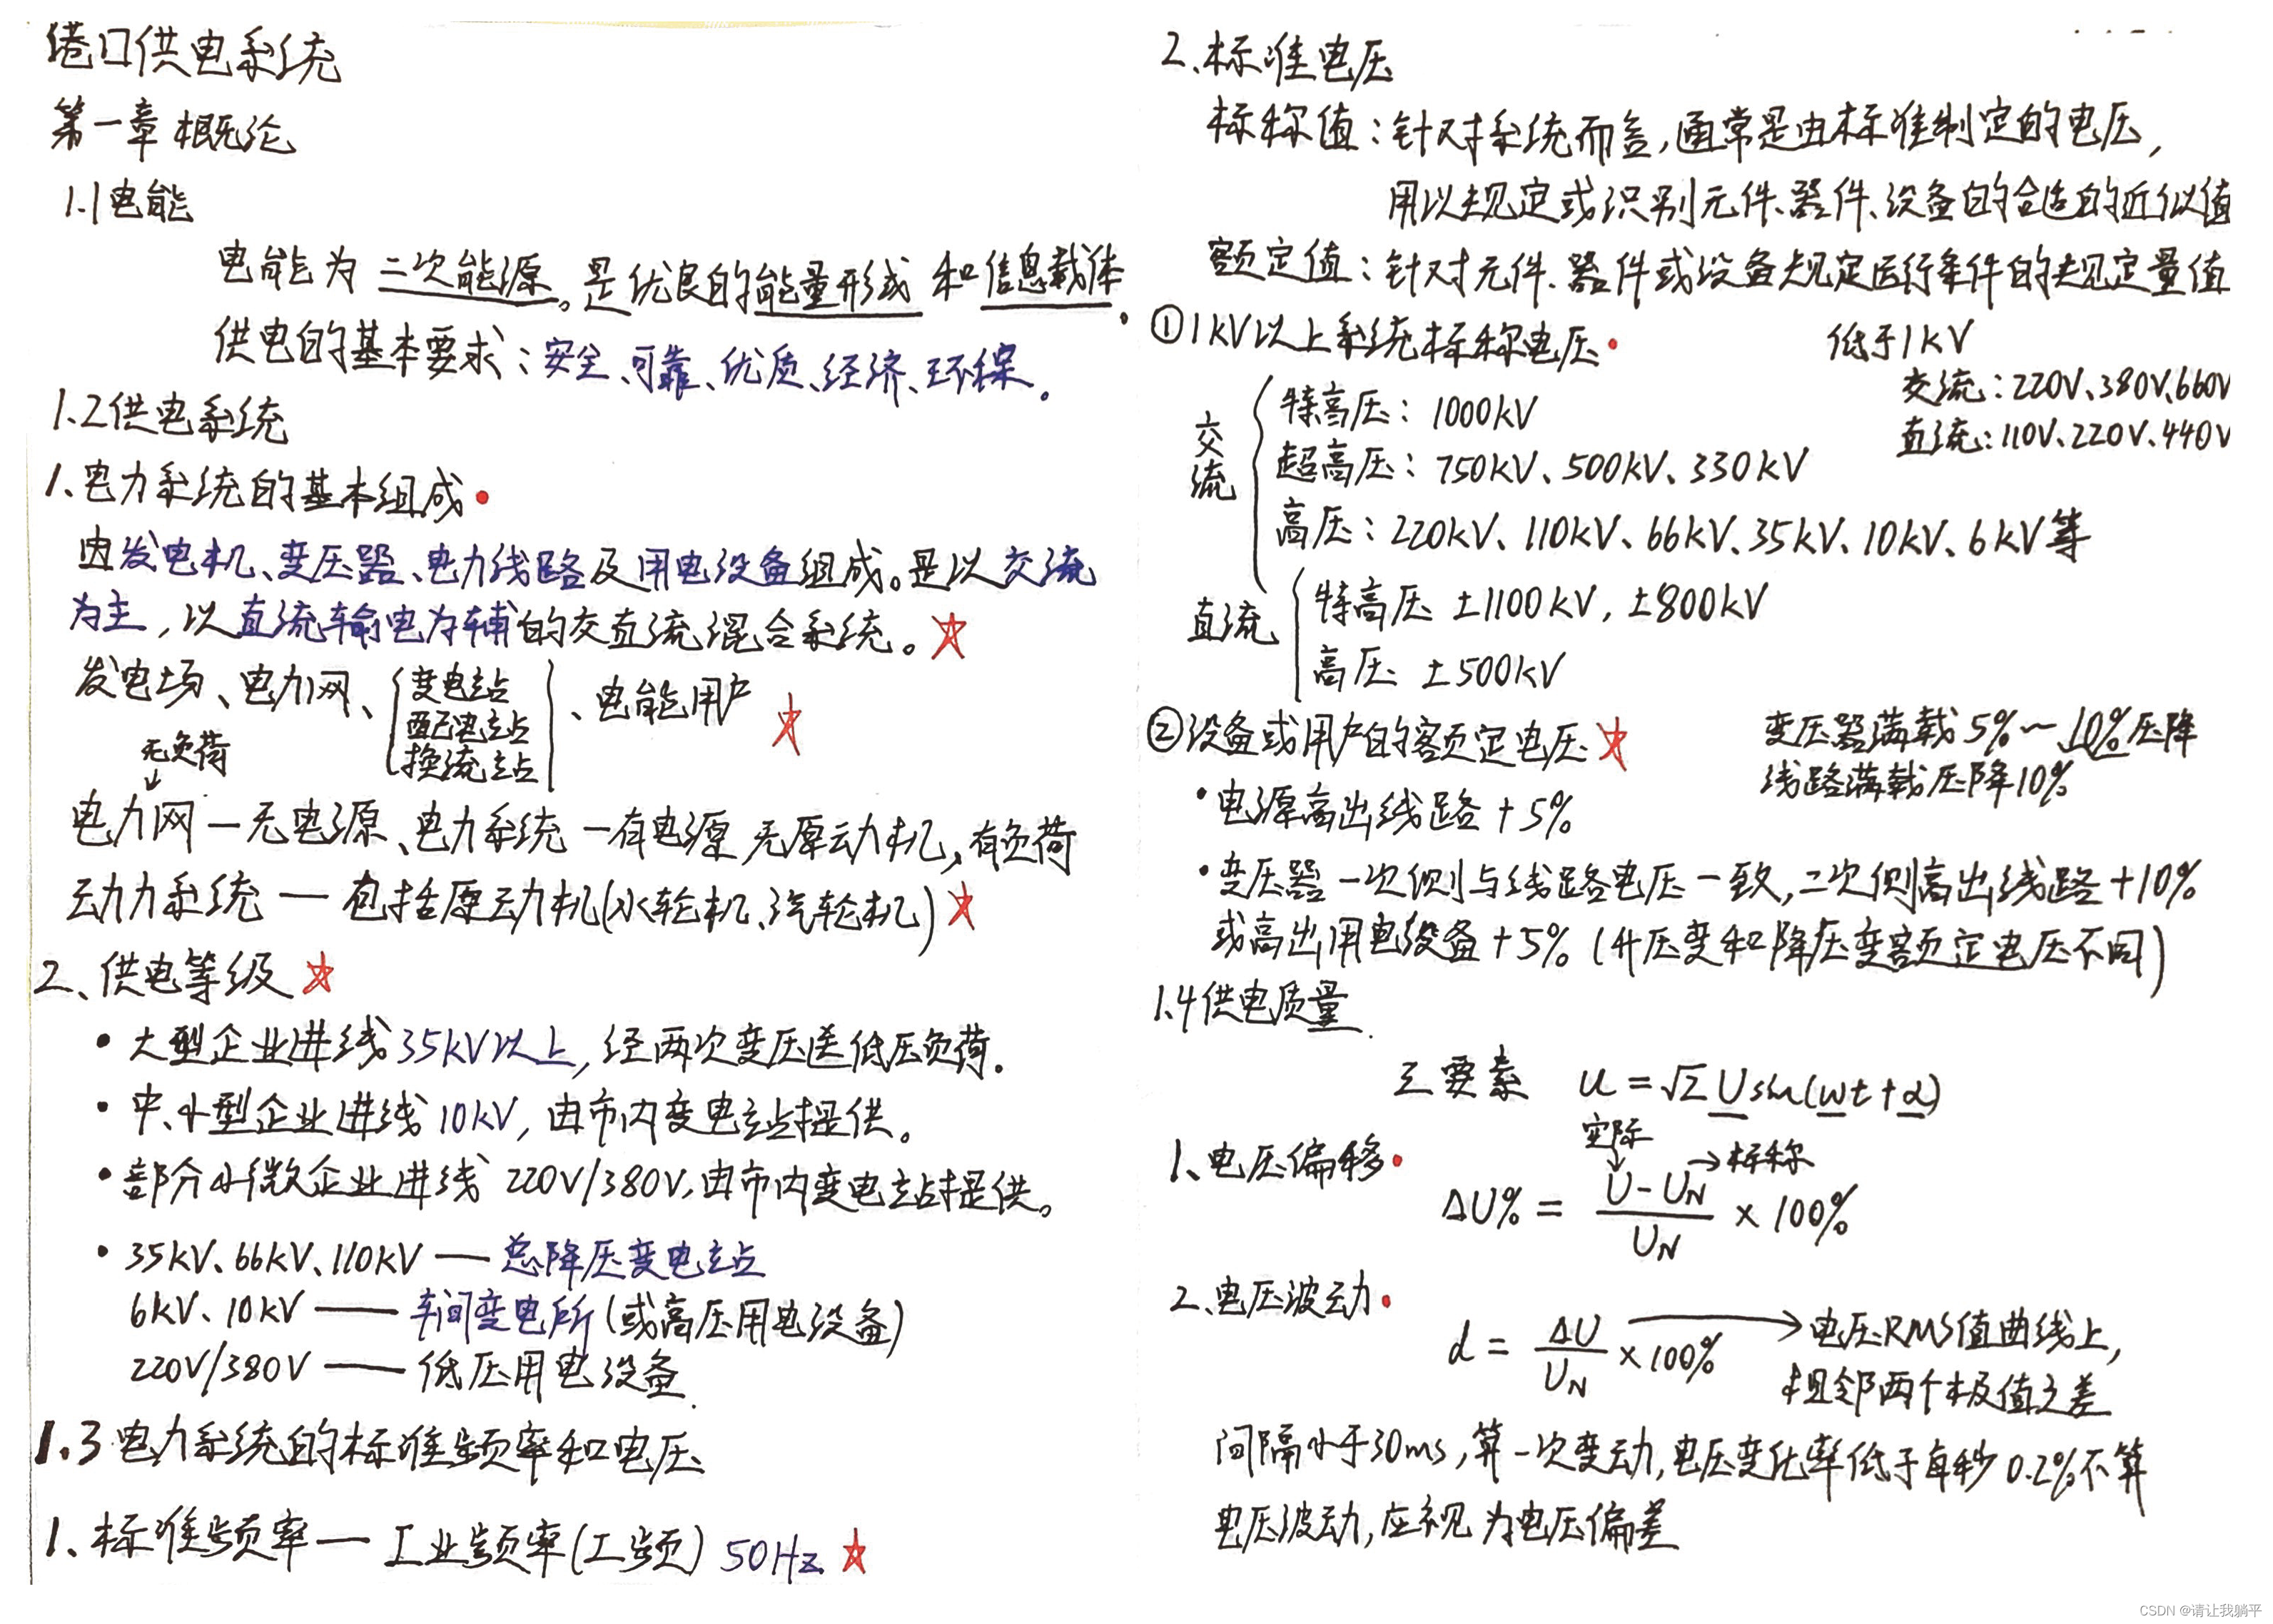 港口供电系统
第一章 概论
1.1 电能
电能为二次能源。是优良的能量形式和信息载体.
供电的基本要求：安全、可靠、优质、经济、环保。
1.2 供电系统
1、电力系统的基本组成
由发电机、变压器、电力线路及用电设备组成。是以交流
为主，以直流输电为辅的交直流混合系统。
发电场、电力网、{变电站 配电站 换流站}、电能用户
无负荷
电力网—无电源、电力系统—有电源 无原动机，有负荷
动力系统 — 包括原动机(水轮机、汽轮机)
2、供电等级
• 大型企业进线35kV以上，经两次变压送低压负荷.
• 中、小型企业进线10kV，由市内变电站提供。
• 部分小微企业进线 220V/380V，由市内变电站提供。
• 35kV、66kV、110kV — 总降压变电站
6kV、10kV — 车间变电所(或高压用电设备)
220V/380V — 低压用电设备.
1.3 电力系统的标准频率和电压
1、标准频率— 工业频率(工频) 50Hz
2、标准电压
标称值：针对系统而言，通常是由标准制定的电压，
用以规定或识别元件、器件、设备的合适的近似值
额定值：针对元件、器件或设备规定运行条件的规定量值
① 1kV以上系统标称电压
低于1kV
交流：220V、380V、660V
直流：110V、220V、440V
交流
特高压：1000kV
超高压：750kV、500kV、330kV
高压：220kV、110kV、66kV、35kV、10kV、6kV等
直流
特高压 ±1100kV，±800kV
高压 ±500kV
② 设备或用户的额定电压
变压器满载5%～10%压降
线路满载压降10%
• 电源高出线路+5%
• 变压器一次侧与线路电压一致，二次侧高出线路+10%
或高出用电设备+5% (升压变和降压变额定电压不同)
1.4 供电质量
三要素 u=√2Usin(wt+α)
1、电压偏移
实际 →标称
ΔU% = (U-U_N)/U_N × 100%
2、电压波动
d = ΔU/U_N ×100% → 电压RMS值曲线上，
相邻两个极值之差
间隔小于30ms，算一次变动，电压变化率低于每秒0.2%不算
电压波动，应视为电压偏差
CSDN @请让我躺平